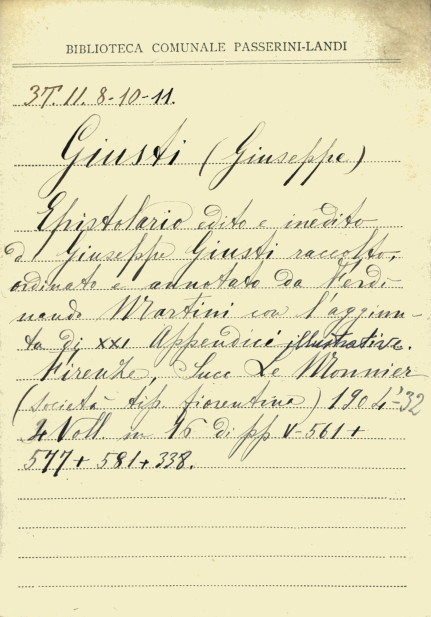 BIBLIOTECA COMUNALE PASSERINI-LANDI
3T. II. 8-10-11.
Giusti (Giuseppe)
Epistolario edito e inedito
di Giuseppe Giusti raccolto,
ordinato e annotato da Ferdi-
nando Martini con l'aggiun-
ta di XXI Appendici illustrative.
Firenze, Succ Le Monnier
(Società tip. fiorentina) 1904-32
4 Voll. in 16 di pp V-561+
577+581+338.